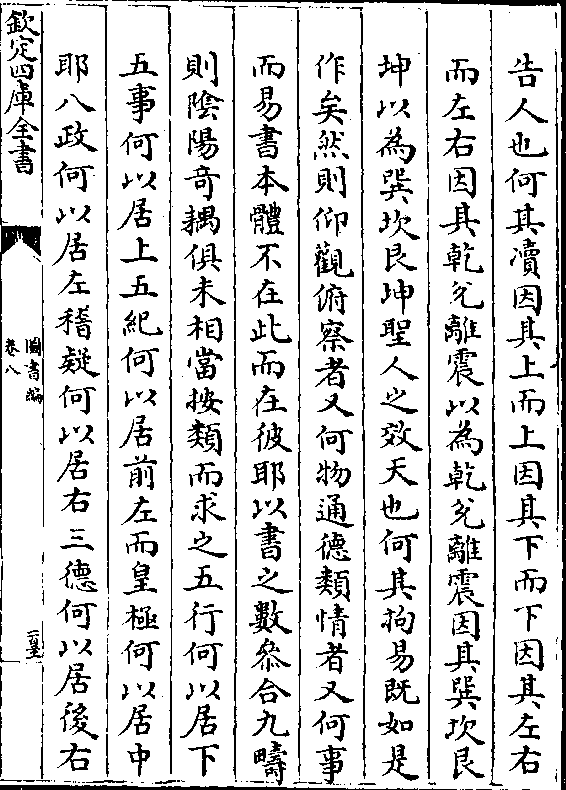 告人也何其瀆因其上而上因其下而下因其左右
而左右因其乾兊離震以為乾兊離震因其巽坎艮
坤以為巽坎艮坤聖人之效天也何其拘易既如是
作矣然則仰觀俯察者又何物通德類情者又何事
而易書本體不在此而在彼耶以書之數叅合九疇
則陰陽竒耦俱未相當按類而求之五行何以居下
五事何以居上五紀何以居前左而皇極何以居中
耶八政何以居左稽疑何以居右三德何以居後右
欽定四庫全書
圖書編
卷八